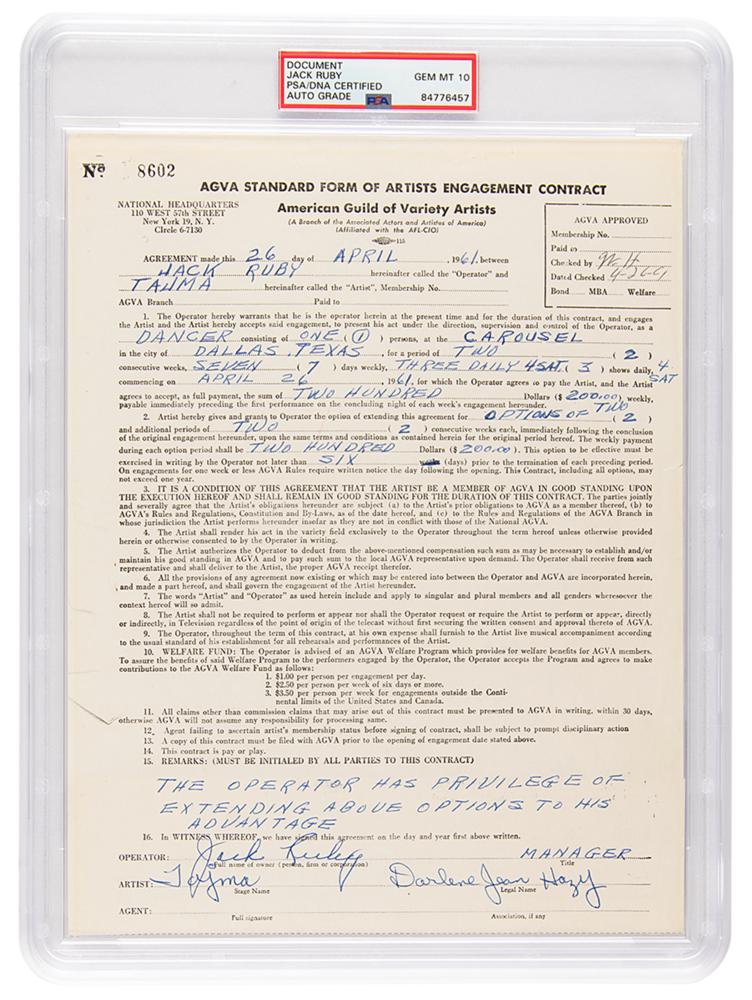 DOCUMENT
JACK RUBY GEM MT 10
PSA/DNA CERTIFIED
AUTO GRADE PSA 84776457
No 8602
AGVA STANDARD FORM OF ARTISTS ENGAGEMENT CONTRACT
NATIONAL HEADQUARTERS
110 WEST 57th STREET
New York 19, N. Y.
CIrcle 6-7130
American Guild of Variety Artists
(A Branch of the Associated Actors and Artistes of America)
(Affiliated with the AFL-CIO)
115
AGVA APPROVED
Membership No.
Paid to
Checked by
Dated Checked 4-26-61
Bond MBA Welfare
AGREEMENT made this 26 day of APRIL, 1961, between
JACK RUBY hereinafter called the "Operator" and
TAJMA hereinafter called the "Artist", Membership No.
AGVA Branch Paid to
1. The Operator hereby warrants that he is the operator herein at the present time and for the duration of this contract, and engages
the Artist and the Artist hereby accepts said engagement, to present his act under the direction, supervision and control of the Operator, as a
DANCER consisting of ONE (1) persons, at the CAROUSEL
in the city of DALLAS, TEXAS, for a period of TWO (2)
consecutive weeks, SEVEN (7) days weekly, THREE DAILY 4 SAT. (3) shows daily, 4 SAT
commencing on APRIL 26, 1961, for which the Operator agrees to pay the Artist, and the Artist
agrees to accept, as full payment, the sum of TWO HUNDRED Dollars ($200.00) weekly,
payable immediately preceding the first performance on the concluding night of each week's engagement hereunder.
2. Artist hereby gives and grants to Operator the option of extending this agreement for OPTIONS OF TWO (2)
and additional periods of TWO (2) consecutive weeks each, immediately following the conclusion
of the original engagement hereunder, upon the same terms and conditions as contained herein for the original period hereof. The weekly payment
during each option period shall be TWO HUNDRED Dollars ($200.00). This option to be effective must be
exercised in writing by the Operator not later than SIX (days) prior to the termination of each preceding period.
On engagements for one week or less AGVA Rules require written notice the day following the opening. This Contract, including all options, may
not exceed one year.
3. IT IS A CONDITION OF THIS AGREEMENT THAT THE ARTIST BE A MEMBER OF AGVA IN GOOD STANDING UPON
THE EXECUTION HEREOF AND SHALL REMAIN IN GOOD STANDING FOR THE DURATION OF THIS CONTRACT. The parties jointly
and severally agree that the Artist's obligations hereunder are subject (a) to the Artist's prior obligations to AGVA as a member thereof, (b) to
AGVA's Rules and Regulations, Constitution and By-Laws, as of the date hereof, and (c) to the Rules and Regulations of the AGVA Branch in
whose jurisdiction the Artist performs hereunder insofar as they are not in conflict with those of the National AGVA.
4. The Artist shall render his act in the variety field exclusively to the Operator throughout the term hereof unless otherwise provided
herein or otherwise consented to by the Operator in writing.
5. The Artist authorizes the Operator to deduct from the above-mentioned compensation such sum as may be necessary to establish and/or
maintain his good standing in AGVA and to pay such sum to the local AGVA representative upon demand. The Operator shall receive from such
representative and shall deliver to the Artist, the proper AGVA receipt therefor.
6. All the provisions of any agreement now existing or which may be entered into between the Operator and AGVA are incorporated herein,
and made a part hereof, and shall govern the engagement of the Artist hereunder.
7. The words "Artist" and "Operator" as used herein include and apply to singular and plural members and all genders wheresoever the
context hereof will so admit.
8. The Artist shall not be required to perform or appear nor shall the Operator request or require the Artist to perform or appear, directly
or indirectly, in Television regardless of the point of origin of the telecast without first securing the written consent and approval thereto of AGVA.
9. The Operator, throughout the term of this contract, at his own expense shall furnish to the Artist live musical accompaniment according
to the usual standard of his establishment for all rehearsals and performances of the Artist.
10. WELFARE FUND: The Operator is advised of an AGVA Welfare Program which provides for welfare benefits for AGVA members.
To assure the benefits of said Welfare Program to the performers engaged by the Operator, the Operator accepts the Program and agrees to make
contributions to the AGVA Welfare Fund as follows:
1. $1.00 per person per engagement per day.
2. $2.50 per person per week of six days or more.
3. $3.50 per person per week for engagements outside the Conti-
nental limits of the United States and Canada.
11. All claims other than commission claims that may arise out of this contract must be presented to AGVA in writing, within 30 days,
otherwise AGVA will not assume any responsibility for processing same.
12. Agent failing to ascertain artist's membership status before signing of contract, shall be subject to prompt disciplinary action
13. A copy of this contract must be filed with AGVA prior to the opening of engagement date stated above.
14. This contract is pay or play.
15. REMARKS: (MUST BE INITIALED BY ALL PARTIES TO THIS CONTRACT)
THE OPERATOR HAS PRIVILEGE OF
EXTENDING ABOVE OPTIONS TO HIS
ADVANTAGE
16. In WITNESS WHEREOF, we have signed this agreement on the day and year first above written.
OPERATOR: Jack Ruby MANAGER
Full name of owner (person, firm or corporation) Title
ARTIST: Tajma Darlene Jean Hazy
Stage Name Legal Name
AGENT:
Full signature Association, if any